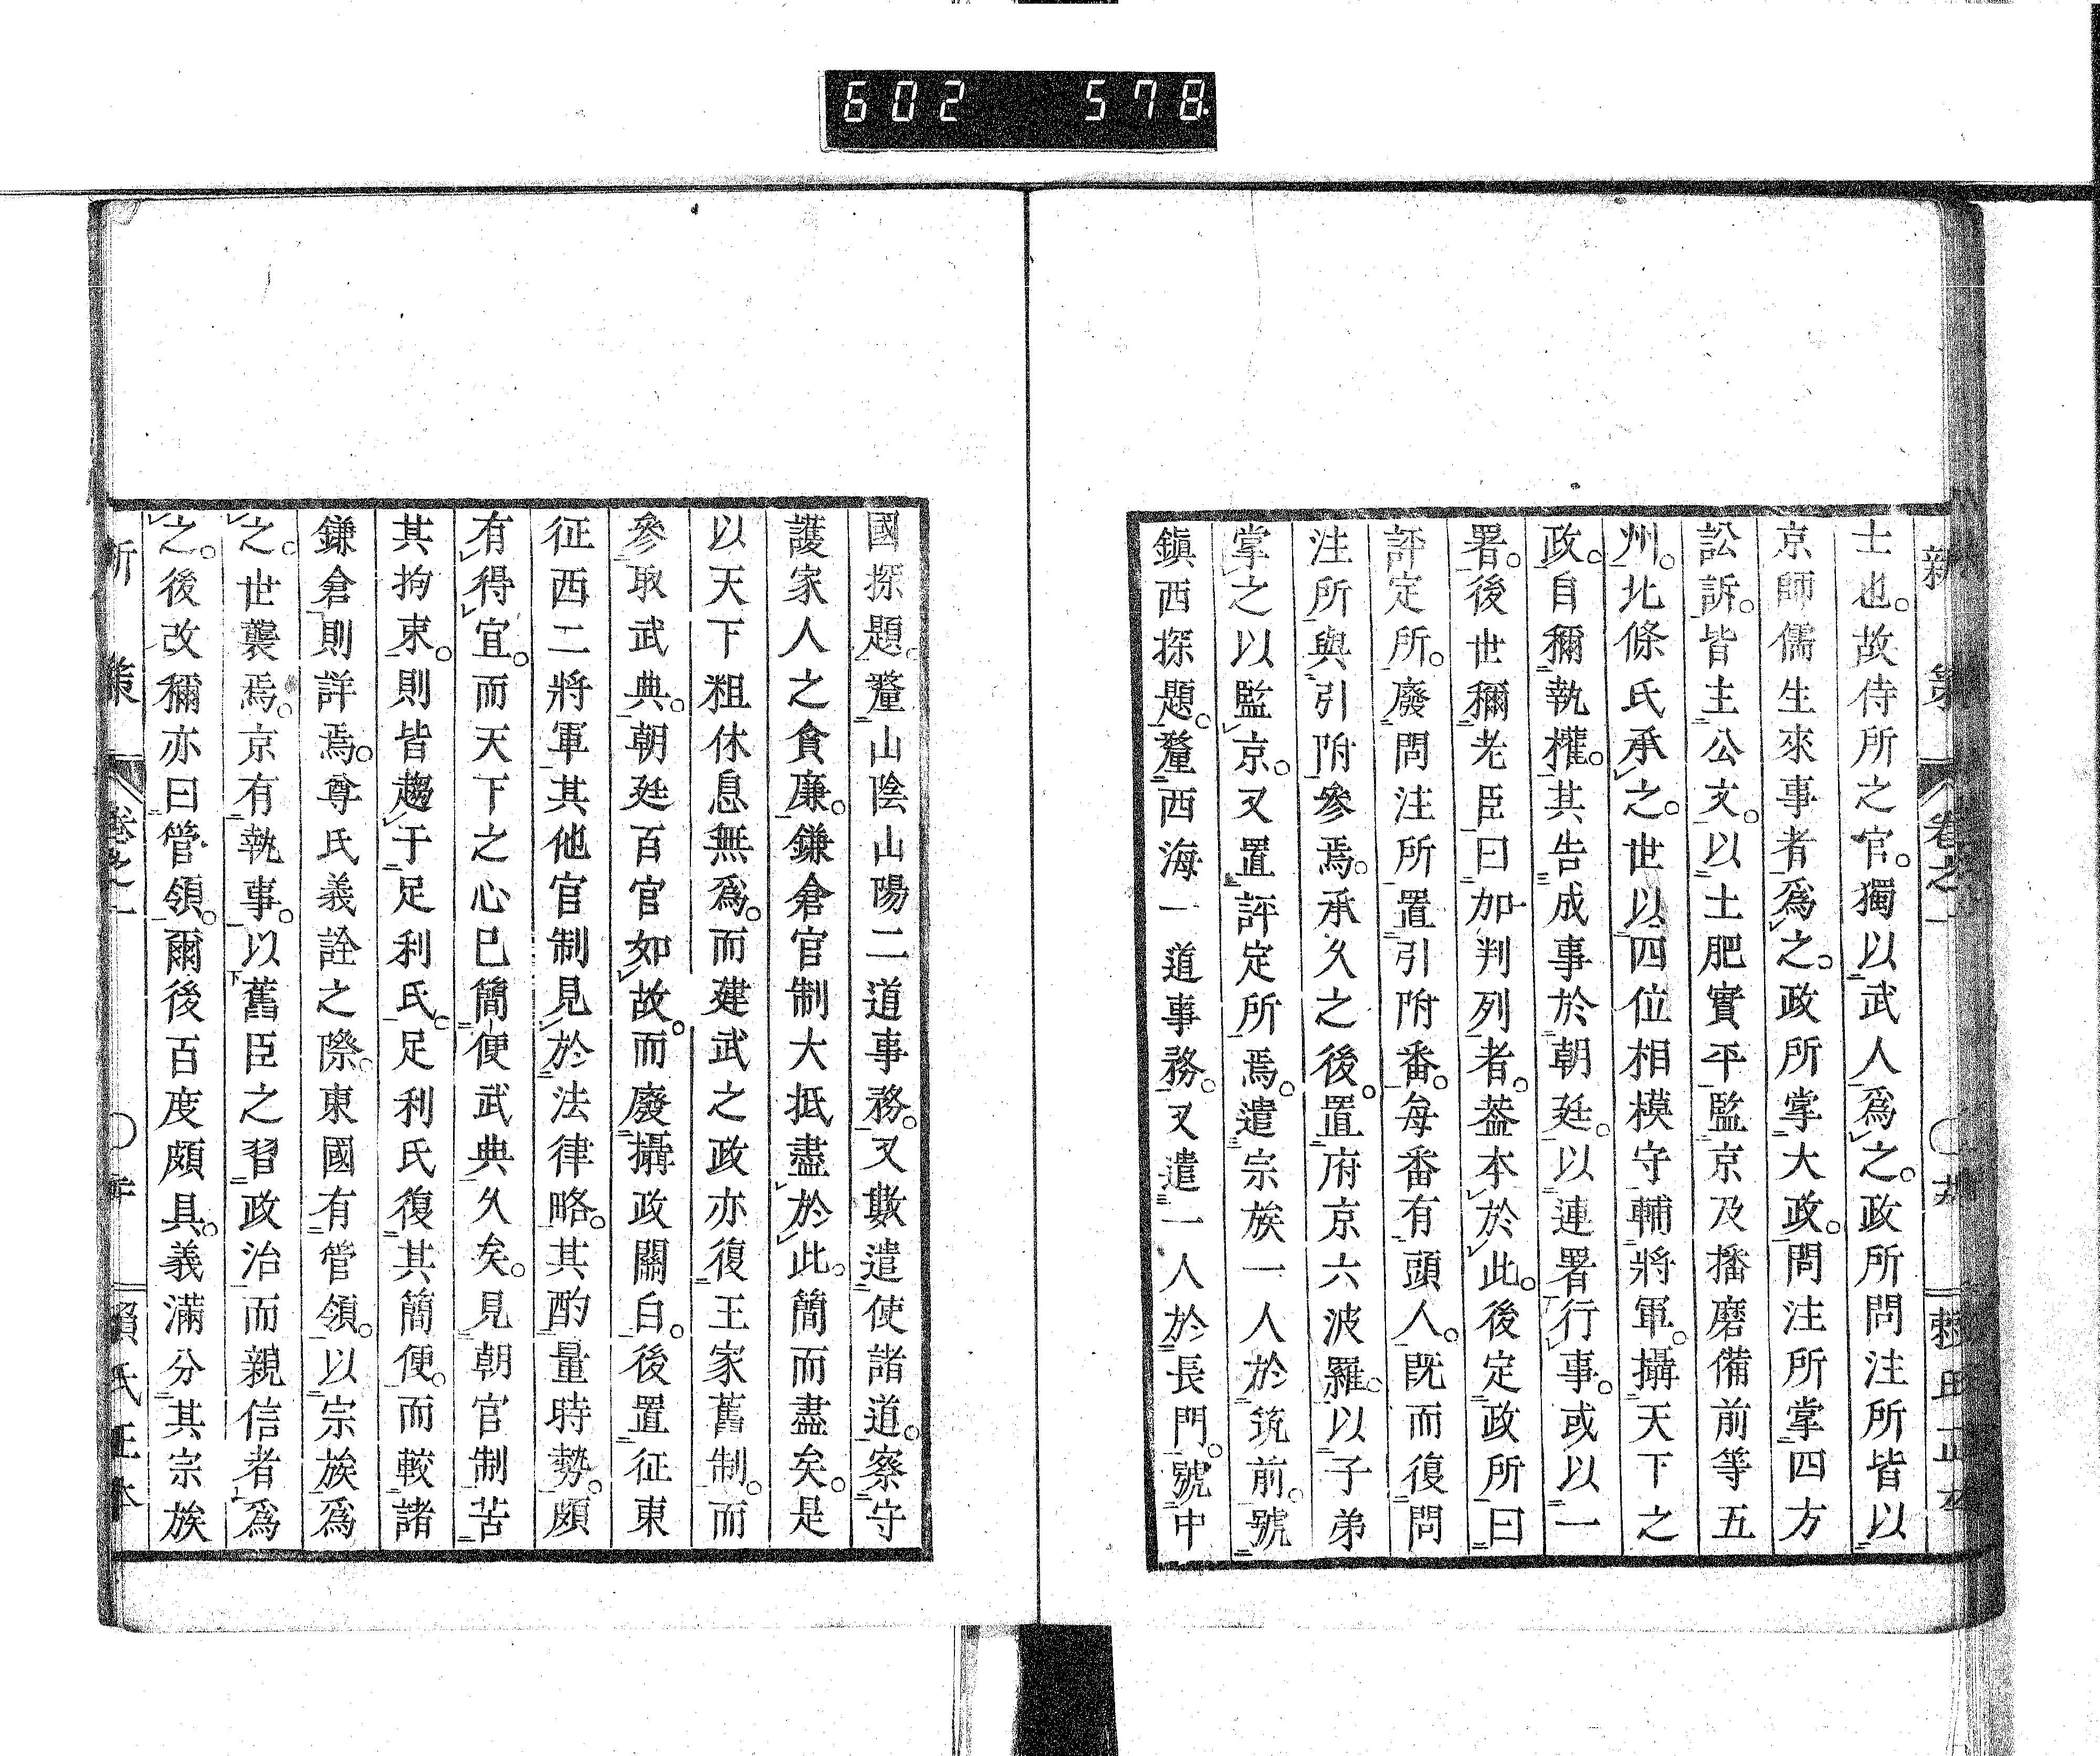 602 578
新策 卷之一
士也。故侍所之官。獨以武人爲之。政所問注所皆以
京師儒生來事者爲之。政所掌大政。問注所掌四方
訟訴。皆主公文。以土肥實平監京及播磨備前等五
州。北條氏承之。世以四位相模守輔將軍。攝天下之
政。自稱執權。其告成事於朝廷。以連署行事。或以一
署。後世稱老臣曰加判列者。葢本於此。後定政所曰
評定所。廢問注所置引附番。每番有頭人。既而復問
注所與引附參焉。承久之後。置府京六波羅。以子弟
掌之以監京。又置評定所焉。遣宗族一人於筑前。號
鎭西探題。釐西海一道事務。又遣一人於長門。號中
國探題。釐山陰山陽二道事務。又數遣使諸道。察守
護家人之貪廉。鎌倉官制大抵盡於此。簡而盡矣。是
以天下粗休息無爲。而建武之政亦復王家舊制。而
參取武典。朝廷百官如故。而廢攝政關白。後置征東
征西二將軍其他官制見於法律略。其酌量時勢。頗
有得宜。而天下之心已簡便武典久矣。見朝官制苦
其拘束。則皆趨于足利氏。足利氏復其簡便。而較諸
鎌倉則詳焉。尊氏義詮之際。東國有管領。以宗族爲
之。世襲焉。京有執事。以舊臣之習政治而親信者爲
之。後改稱亦曰管領。爾後百度頗具。義滿分其宗族
新策 卷之一 賴氏正本